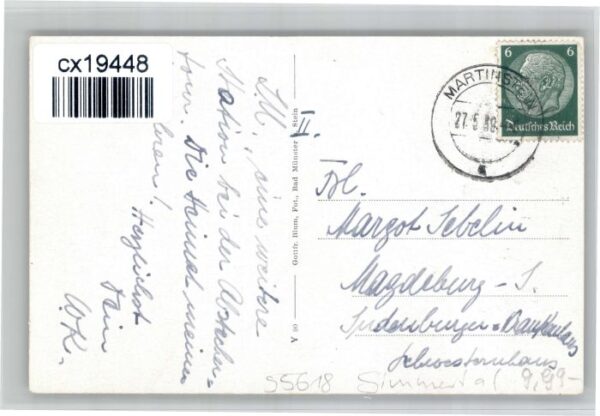 cx19448
I.M., eine weitere
Station bei der Abstecher=
tour. Die Heimat meiner
Herzlichst
Dein
W.K.
II.
A 90 Gottfr. Blum, Fot., Bad Münster a. Stein
6 6
Deutsches Reich
MARTINSTEIN
27.5.39
Frl.
Margot Sebelin
Magdeburg - S.
Sudenburger - Krankenhaus
Schwesternhaus
55618 Simmertal 9,99-